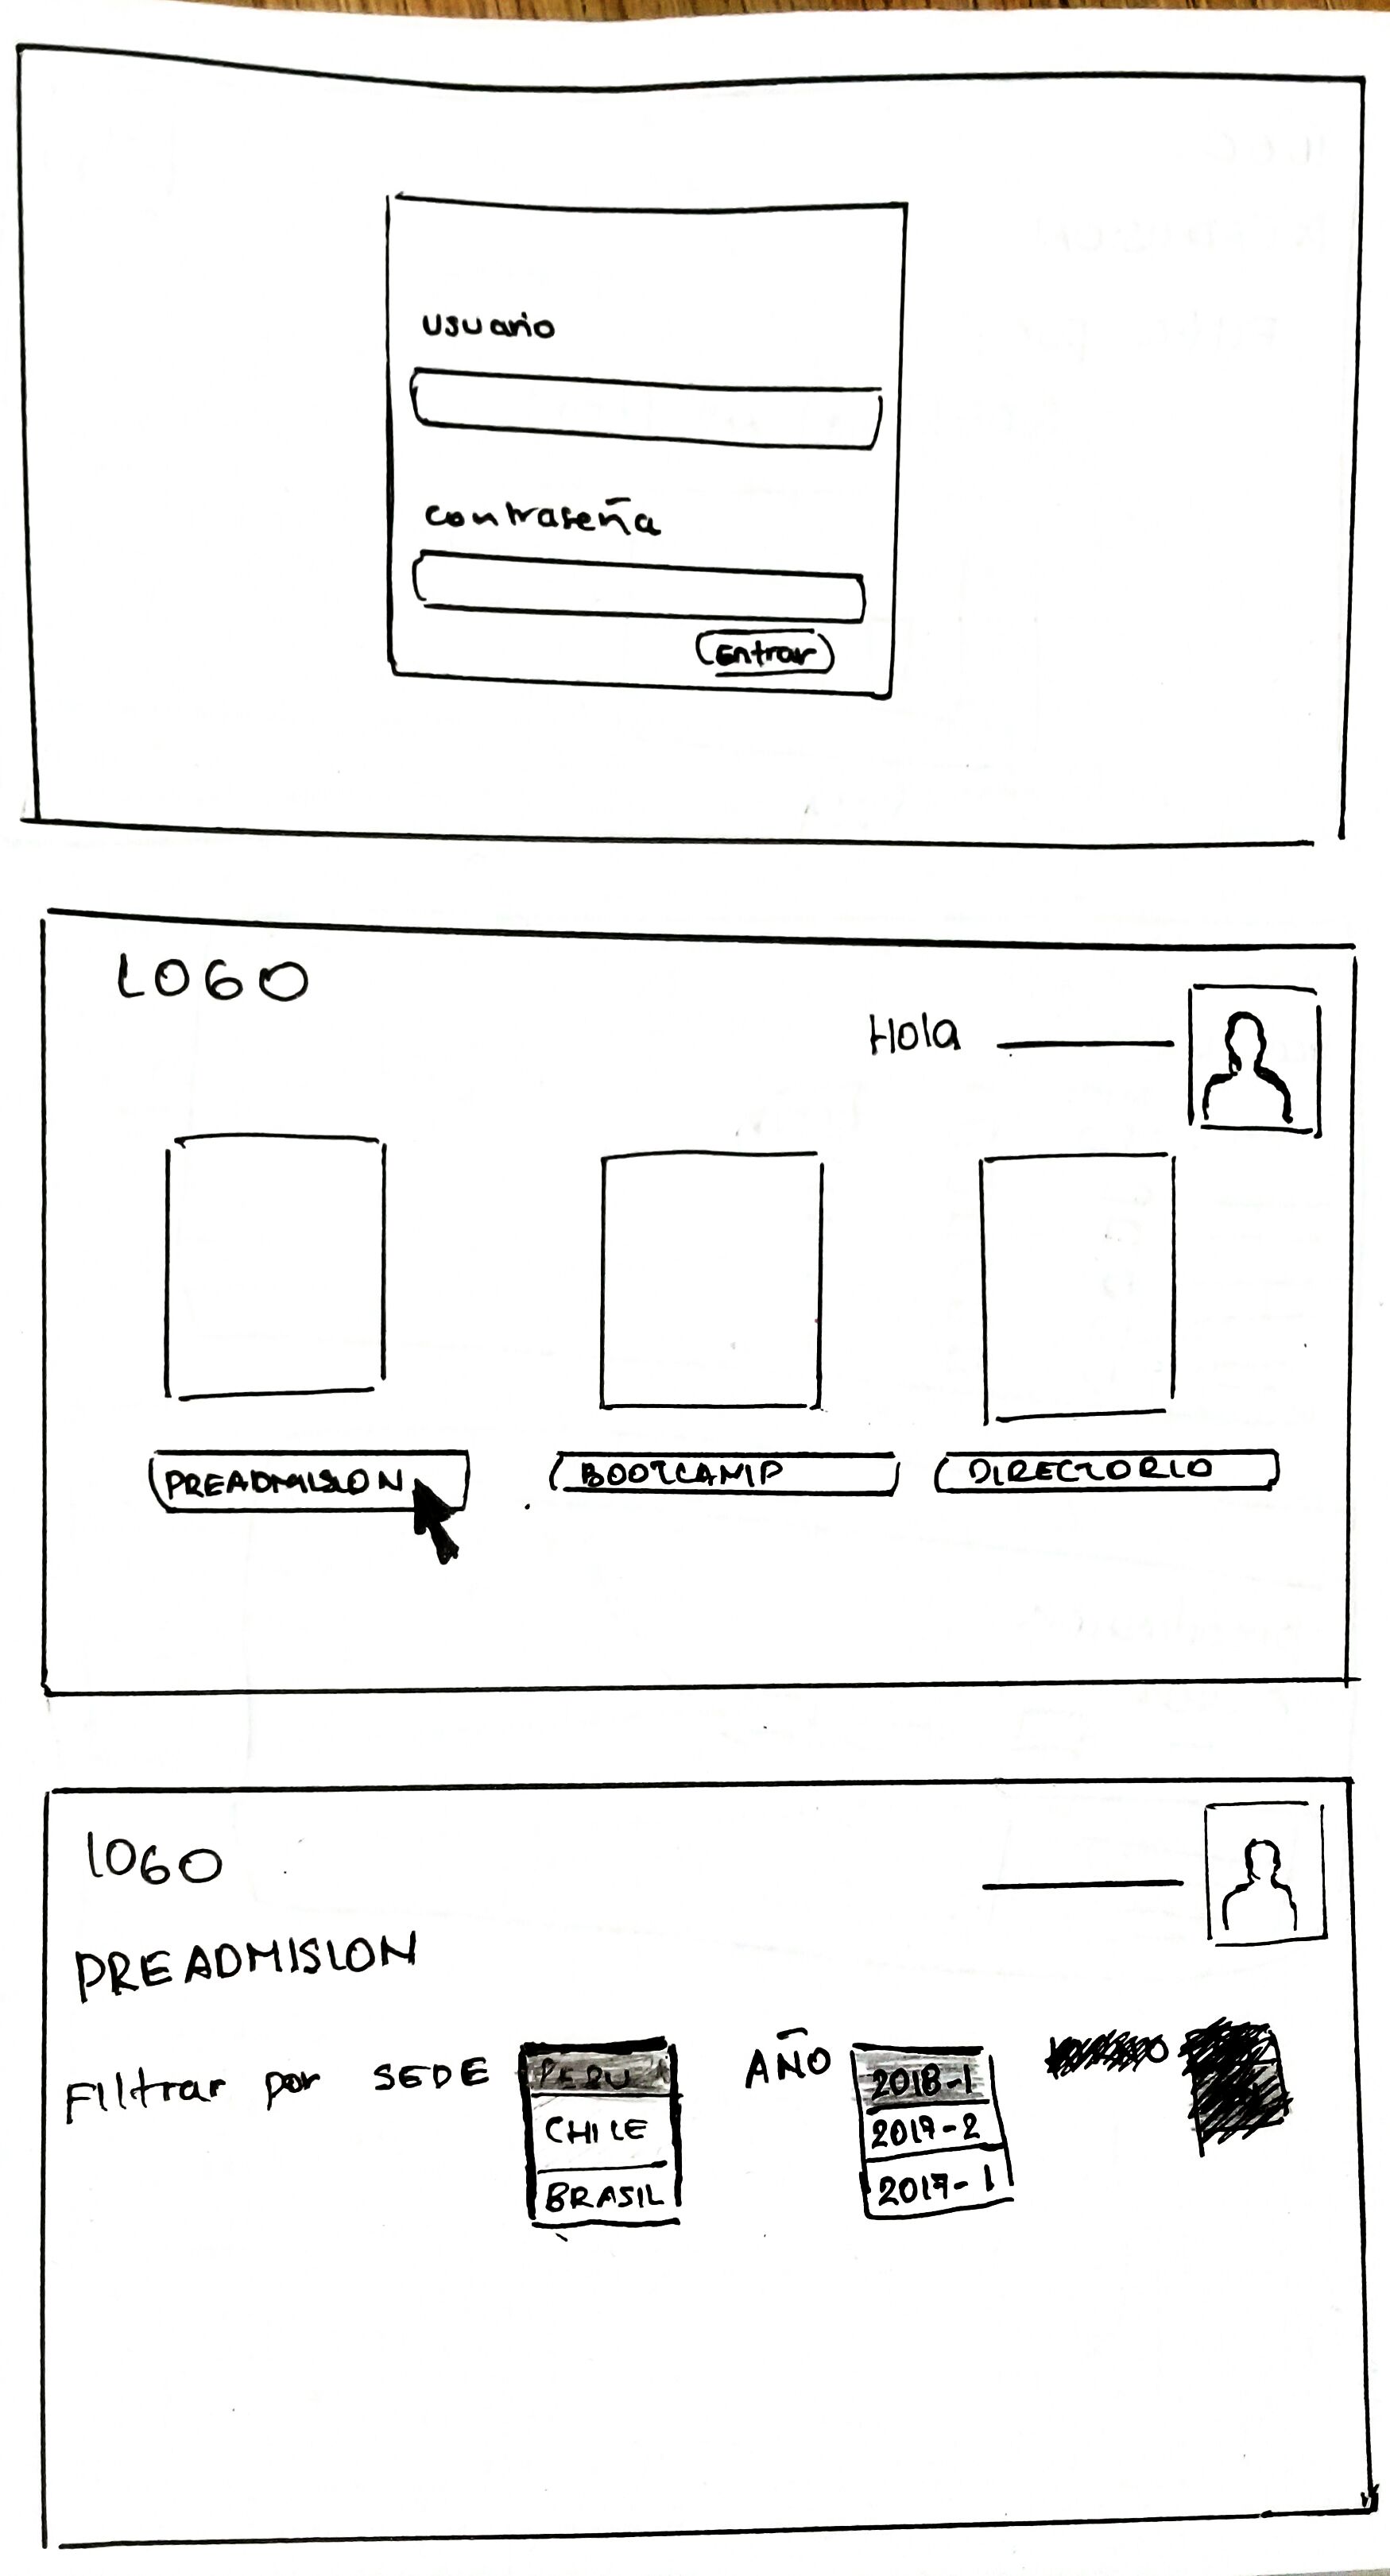 usuario
contraseña
Entrar
LOGO
Hola
PREADMISION
BOOTCAMP
DIRECTORIO
LOGO
PREADMISION
Filtrar por SEDE
PERU
CHILE
BRASIL
AÑO
2018-1
2017-2
2017-1